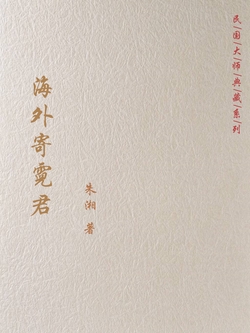 民/国/大/师/典/藏/系/列
海外寄霓君
朱湘 著